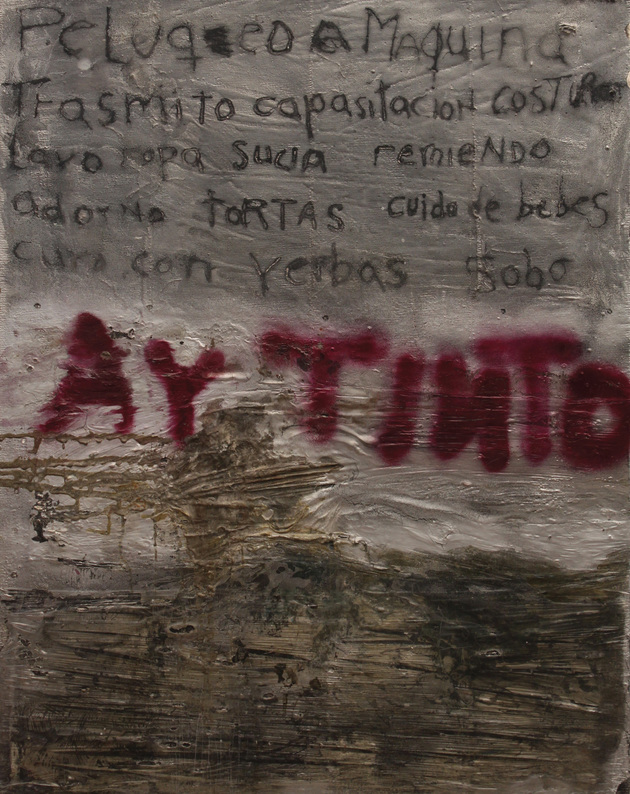 Peluqueo a Maquina
Trasmito capasitacion COSTURA
Lavo ropa sucia remieNDO
adorno TORTAS cuido de bebes
curo con yerbas sobo
AY TINTO